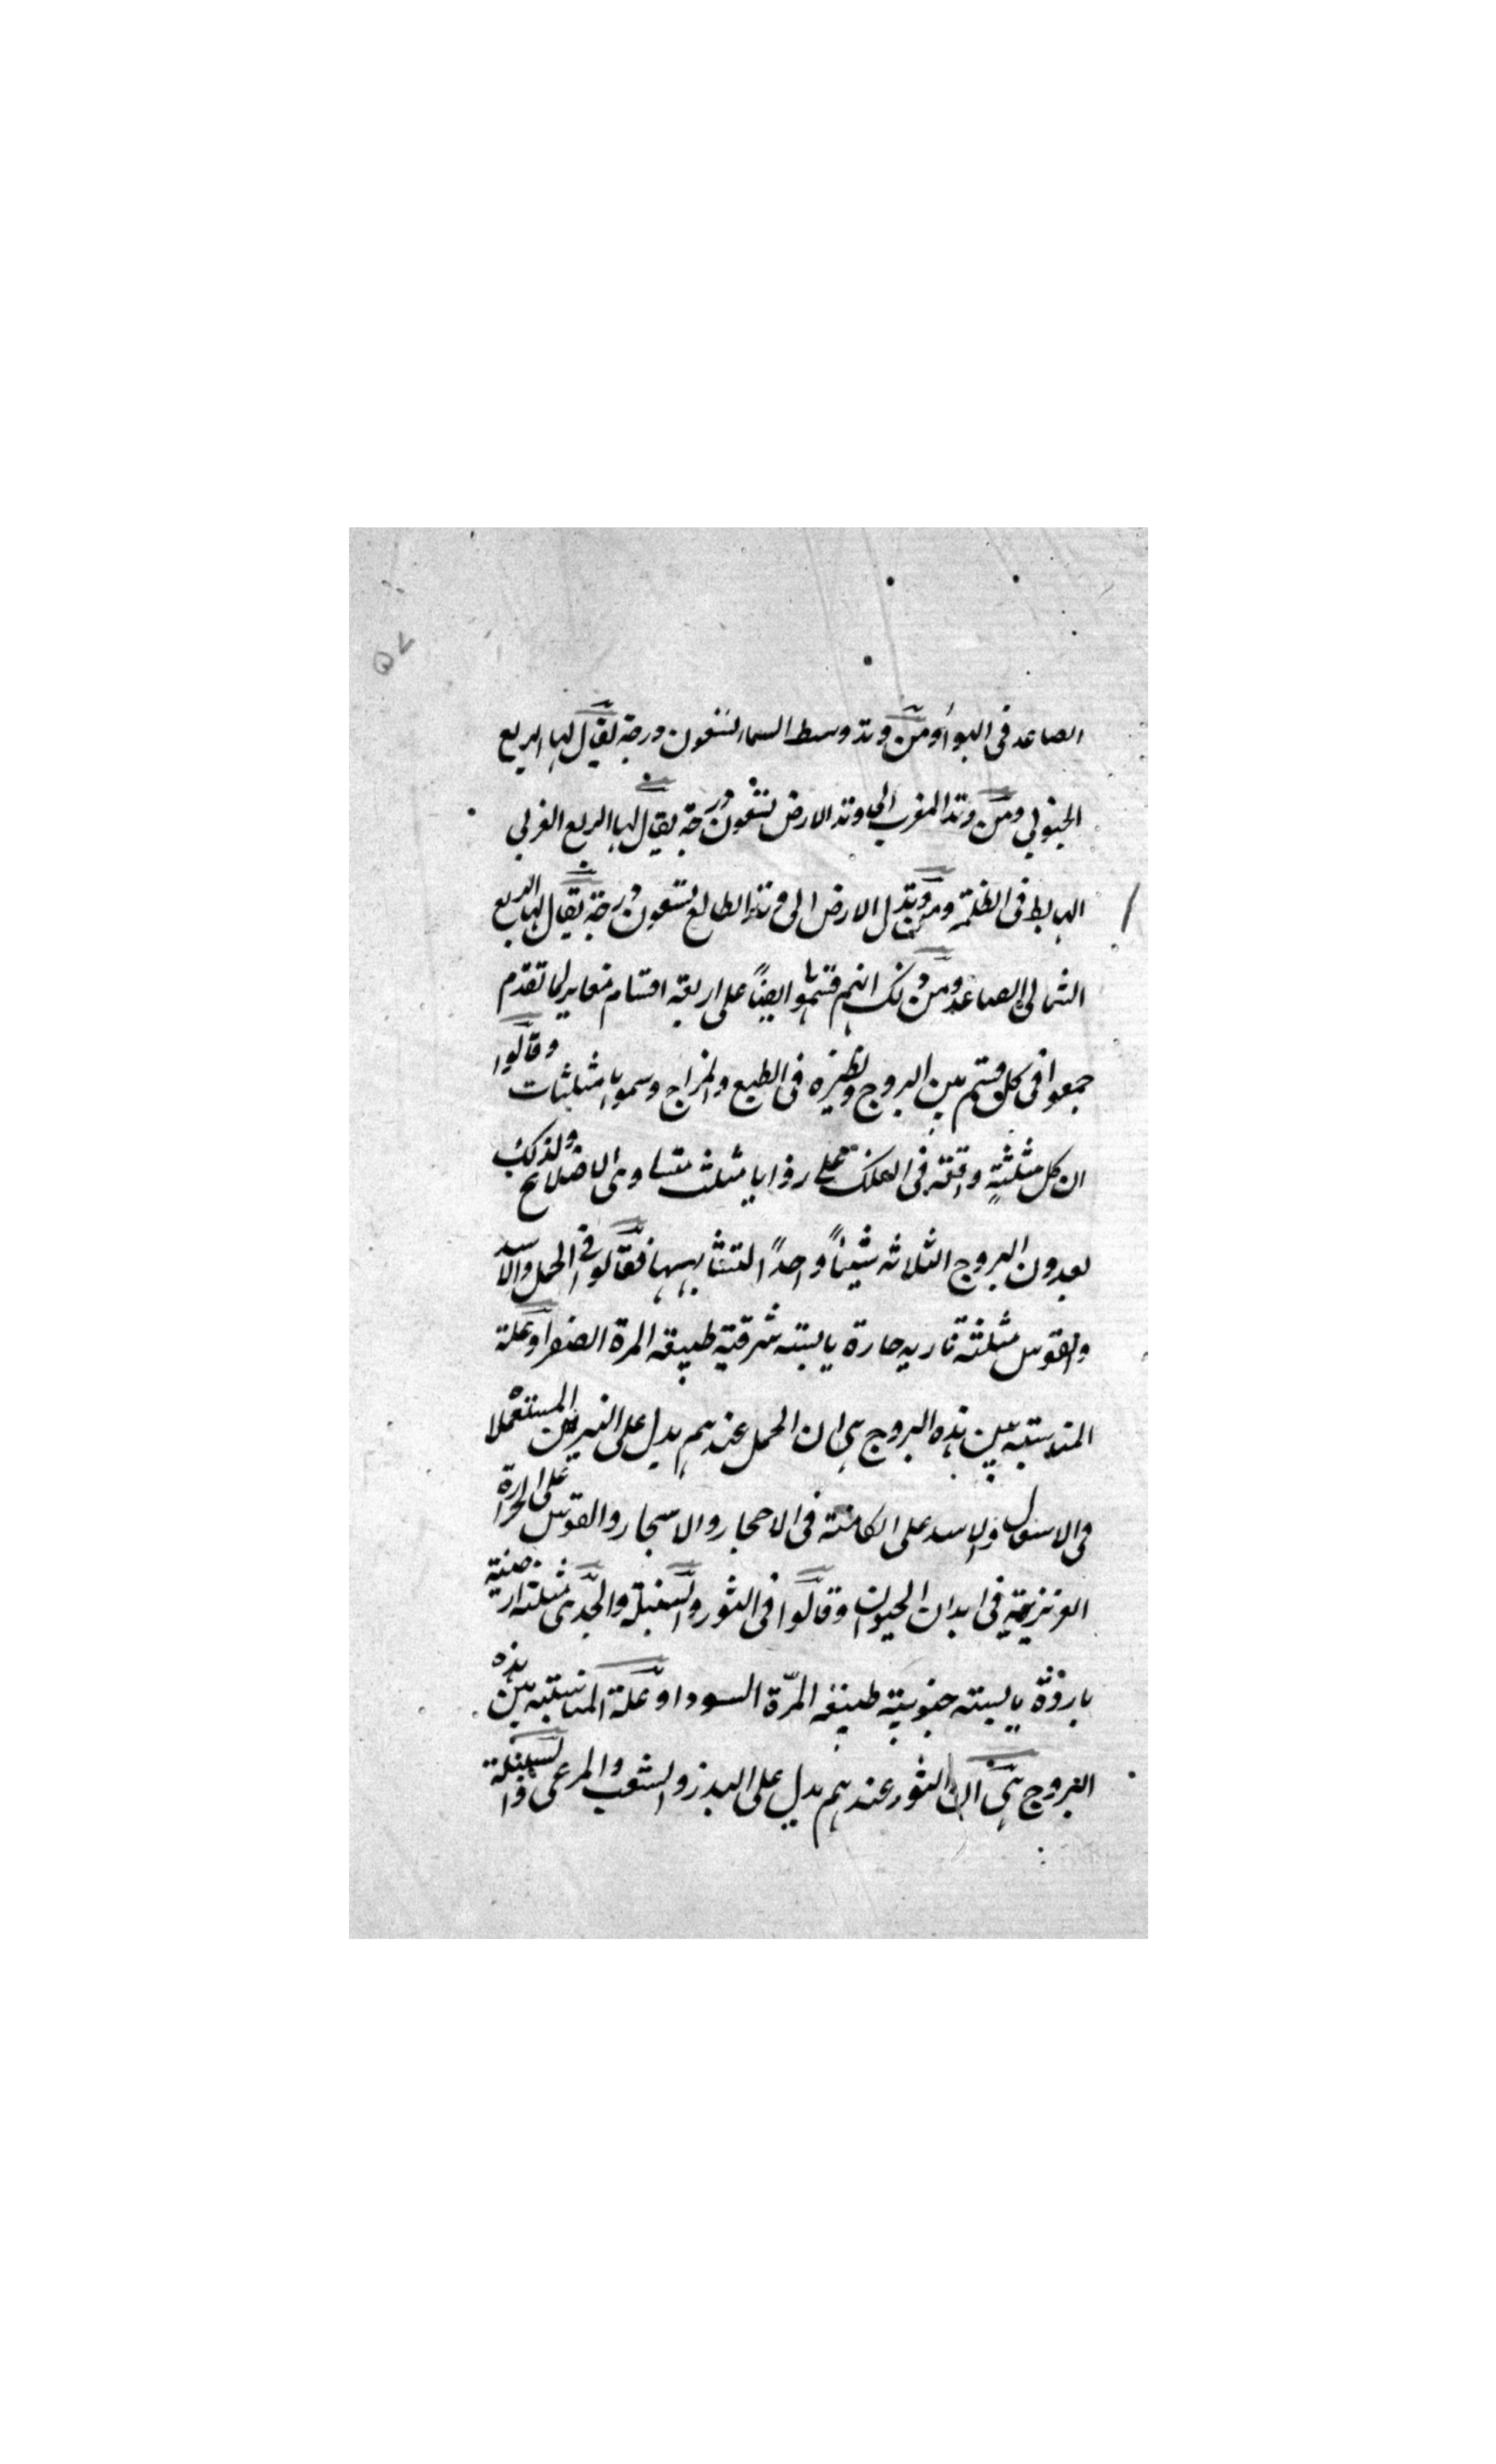 الصاعد فى الهوا ومن وتد وسط السما تسعون درجة يقال لها الربع
الجنوبى ومن وتد المغرب الى وتد الارض تسعون درجة يقال لها الربع الغربى
الهابط فى الظلمة ومن وتد الارض الى وتد الطالع تسعون درجة يقال لها الربع
الشمالى الصاعد ومن ذلك انهم قسموها ايضاً على اربعة اقسام مغاير لما تقدم
جمعوا فى كل قسم بين البروج ونظيره فى الطبع والمزاج وسموها مثلثات وقالوا
ان كل مثلثة واقعة فى الفلك على زوايا مثلث متساوى الاضلاع ولذلك
يعدون البروج الثلاثة شيئاً واحداً لتشابهها فقالوا فى الحمل والاسد
والقوس مثلثة نارية حارة يابسة شرقية طبيعة المرة الصفرا وعلة
المناسبة بين هذه البروج هى ان الحمل عندهم يدل على النيران المستعملة
فى الاسعال والاسد على الكامنة فى الاحجار والاشجار والقوس على الحرارة
الغريزية فى ابدان الحيوان وقالوا فى الثور والسنبلة والجدى مثلثة ارضية
باردة يابسة جنوبية طبيعة المرّة السودا وعلة المناسبة بين هذه
البروج هى ان الثور عندهم يدل على البذر والشعب والمرعى والسنبلة